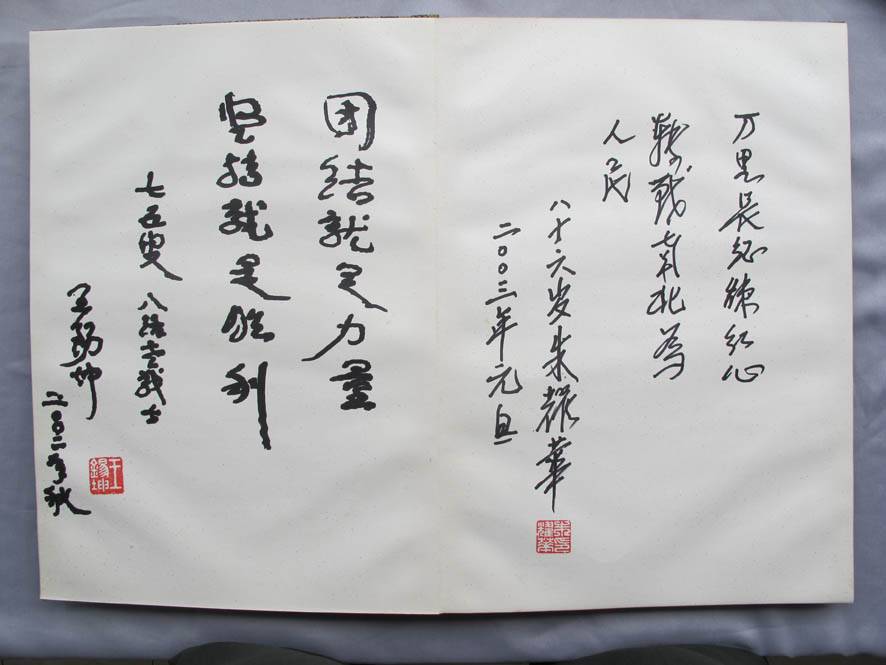 万里长征炼红心
转战南北为
人民
八十六岁朱耀華
二〇〇三年元旦
朱耀華印
团结就是力量
坚持就是胜利
七五叟 八路老战士
王锡坤
二〇〇二年秋
王錫坤